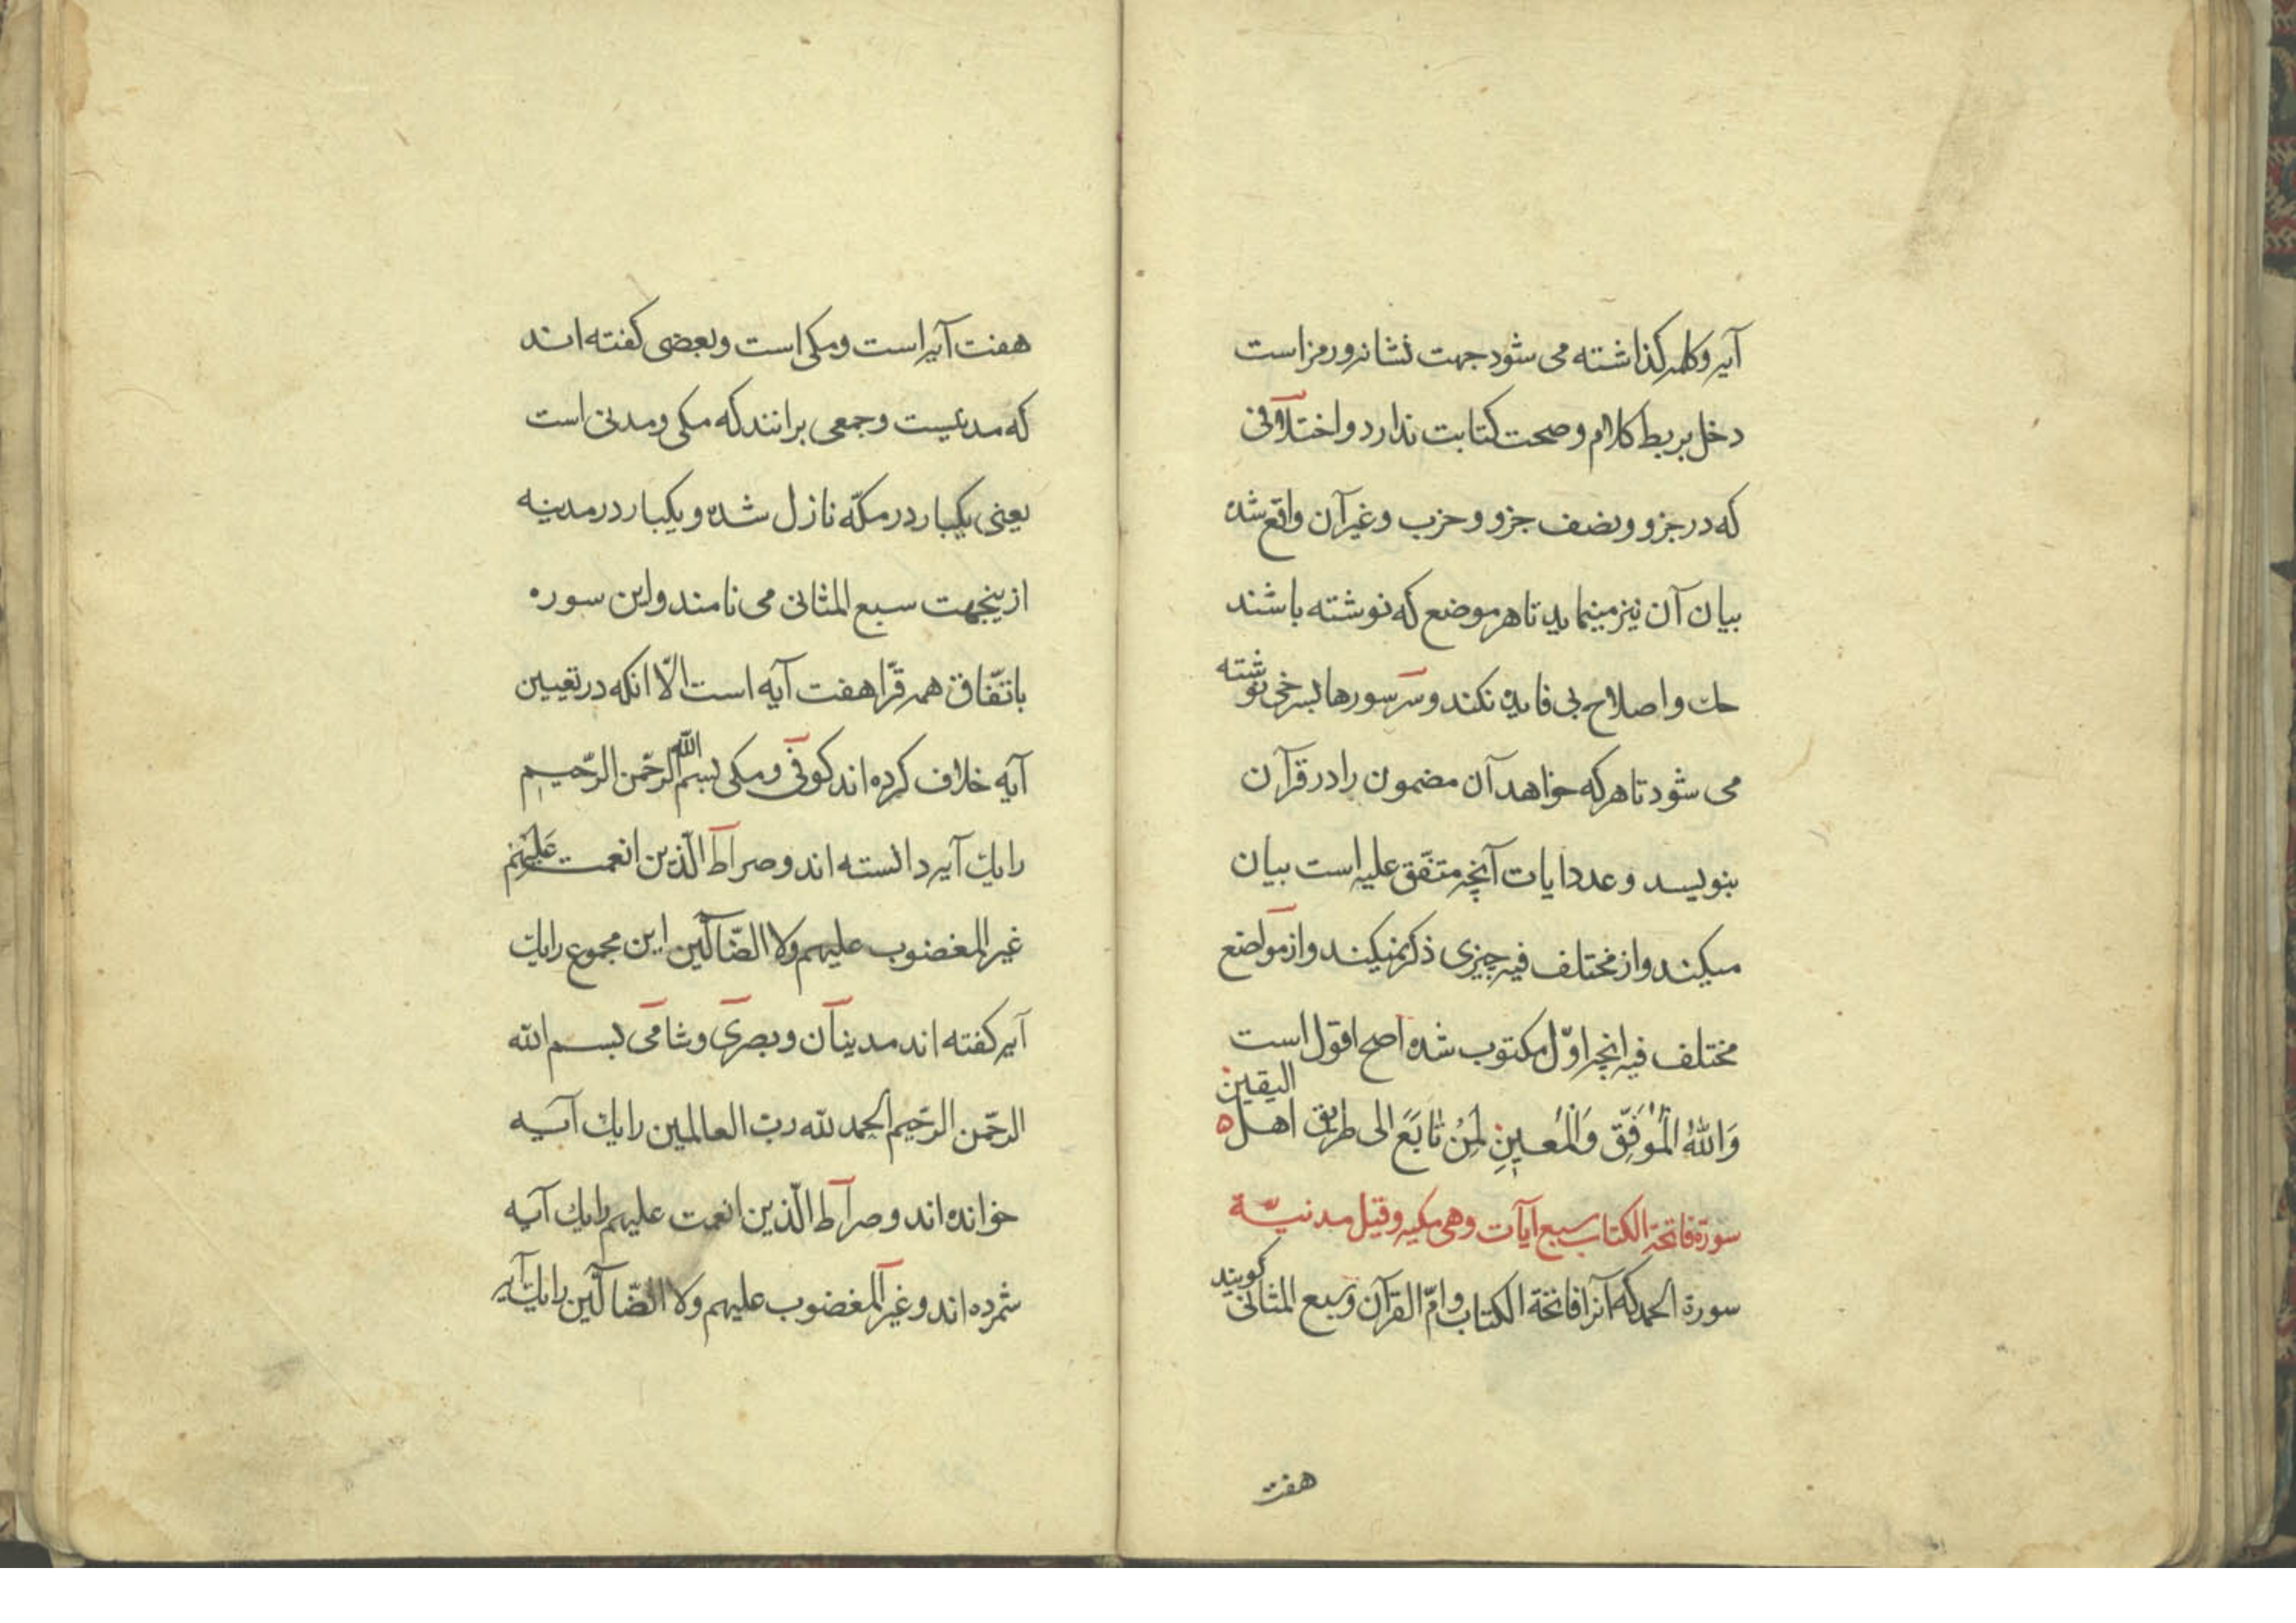 آیه و کلمه کذاشته می شود جهت نشانه و رمز است
دخل بربط کلام و صحت کتابت ندارد و اختلافی
که در جزو و نصف جزو و حزب و غیر آن واقع شده
بیان آن نیز مینماید تا هر موضع که نوشته باشند
حك و اصلاح بی فایده نکند و سر سورها بسرخی نوشته
می شود تا هر که خواهد آن مضمون را در قرآن
بنویسد و عدد ایات آنچه متفّق علیه است بیان
میکند و از مختلف فیه چیزی ذکر نمیکند و از مواضع
مختلف فیه انچه اوّل مکتوب شده اصح اقول است
وَاللّٰهُ الْمُوَفِّق وَالْمُعین لِمَنْ تابَعَ الی طریق اهل الیقین
سورة فاتحة الکتاب سبع آیات وهی مکیه وقیل مدنیة
سورة الحمد که آنرا فاتحة الکتاب و امّ القرآن و سبع المثانی کویند
هفت
هفت آیه است و مکی است و بعضی کفته اند
که مدنیست و جمعی برانند که مکی و مدنی است
یعنی یکبار در مکّه نازل شده و یکبار در مدینه
ازینجهت سبع المثانی می نامند و این سوره
باتّفاق همه قرّا هفت آیه است الّا انکه در تعیین
آیه خلاف کرده اند کوفی و مکی بسم الله الرّحمن الرّحیم
را یك آیه دانسته اند و صراط الّذین انعمت علیهم
غیر المغضوب علیهم ولا الضّآلّین این مجموع را یك
آیه کفته اند مدینان و بصری و شامی بسم الله
الرّحمن الرّحیم الحمد لله ربّ العالمین را یك آیه
خوانده اند و صراط الّذین انعمت علیهم را یك آیه
شمرده اند و غیر المغضوب علیهم ولا الضّآلّین را یك آیه